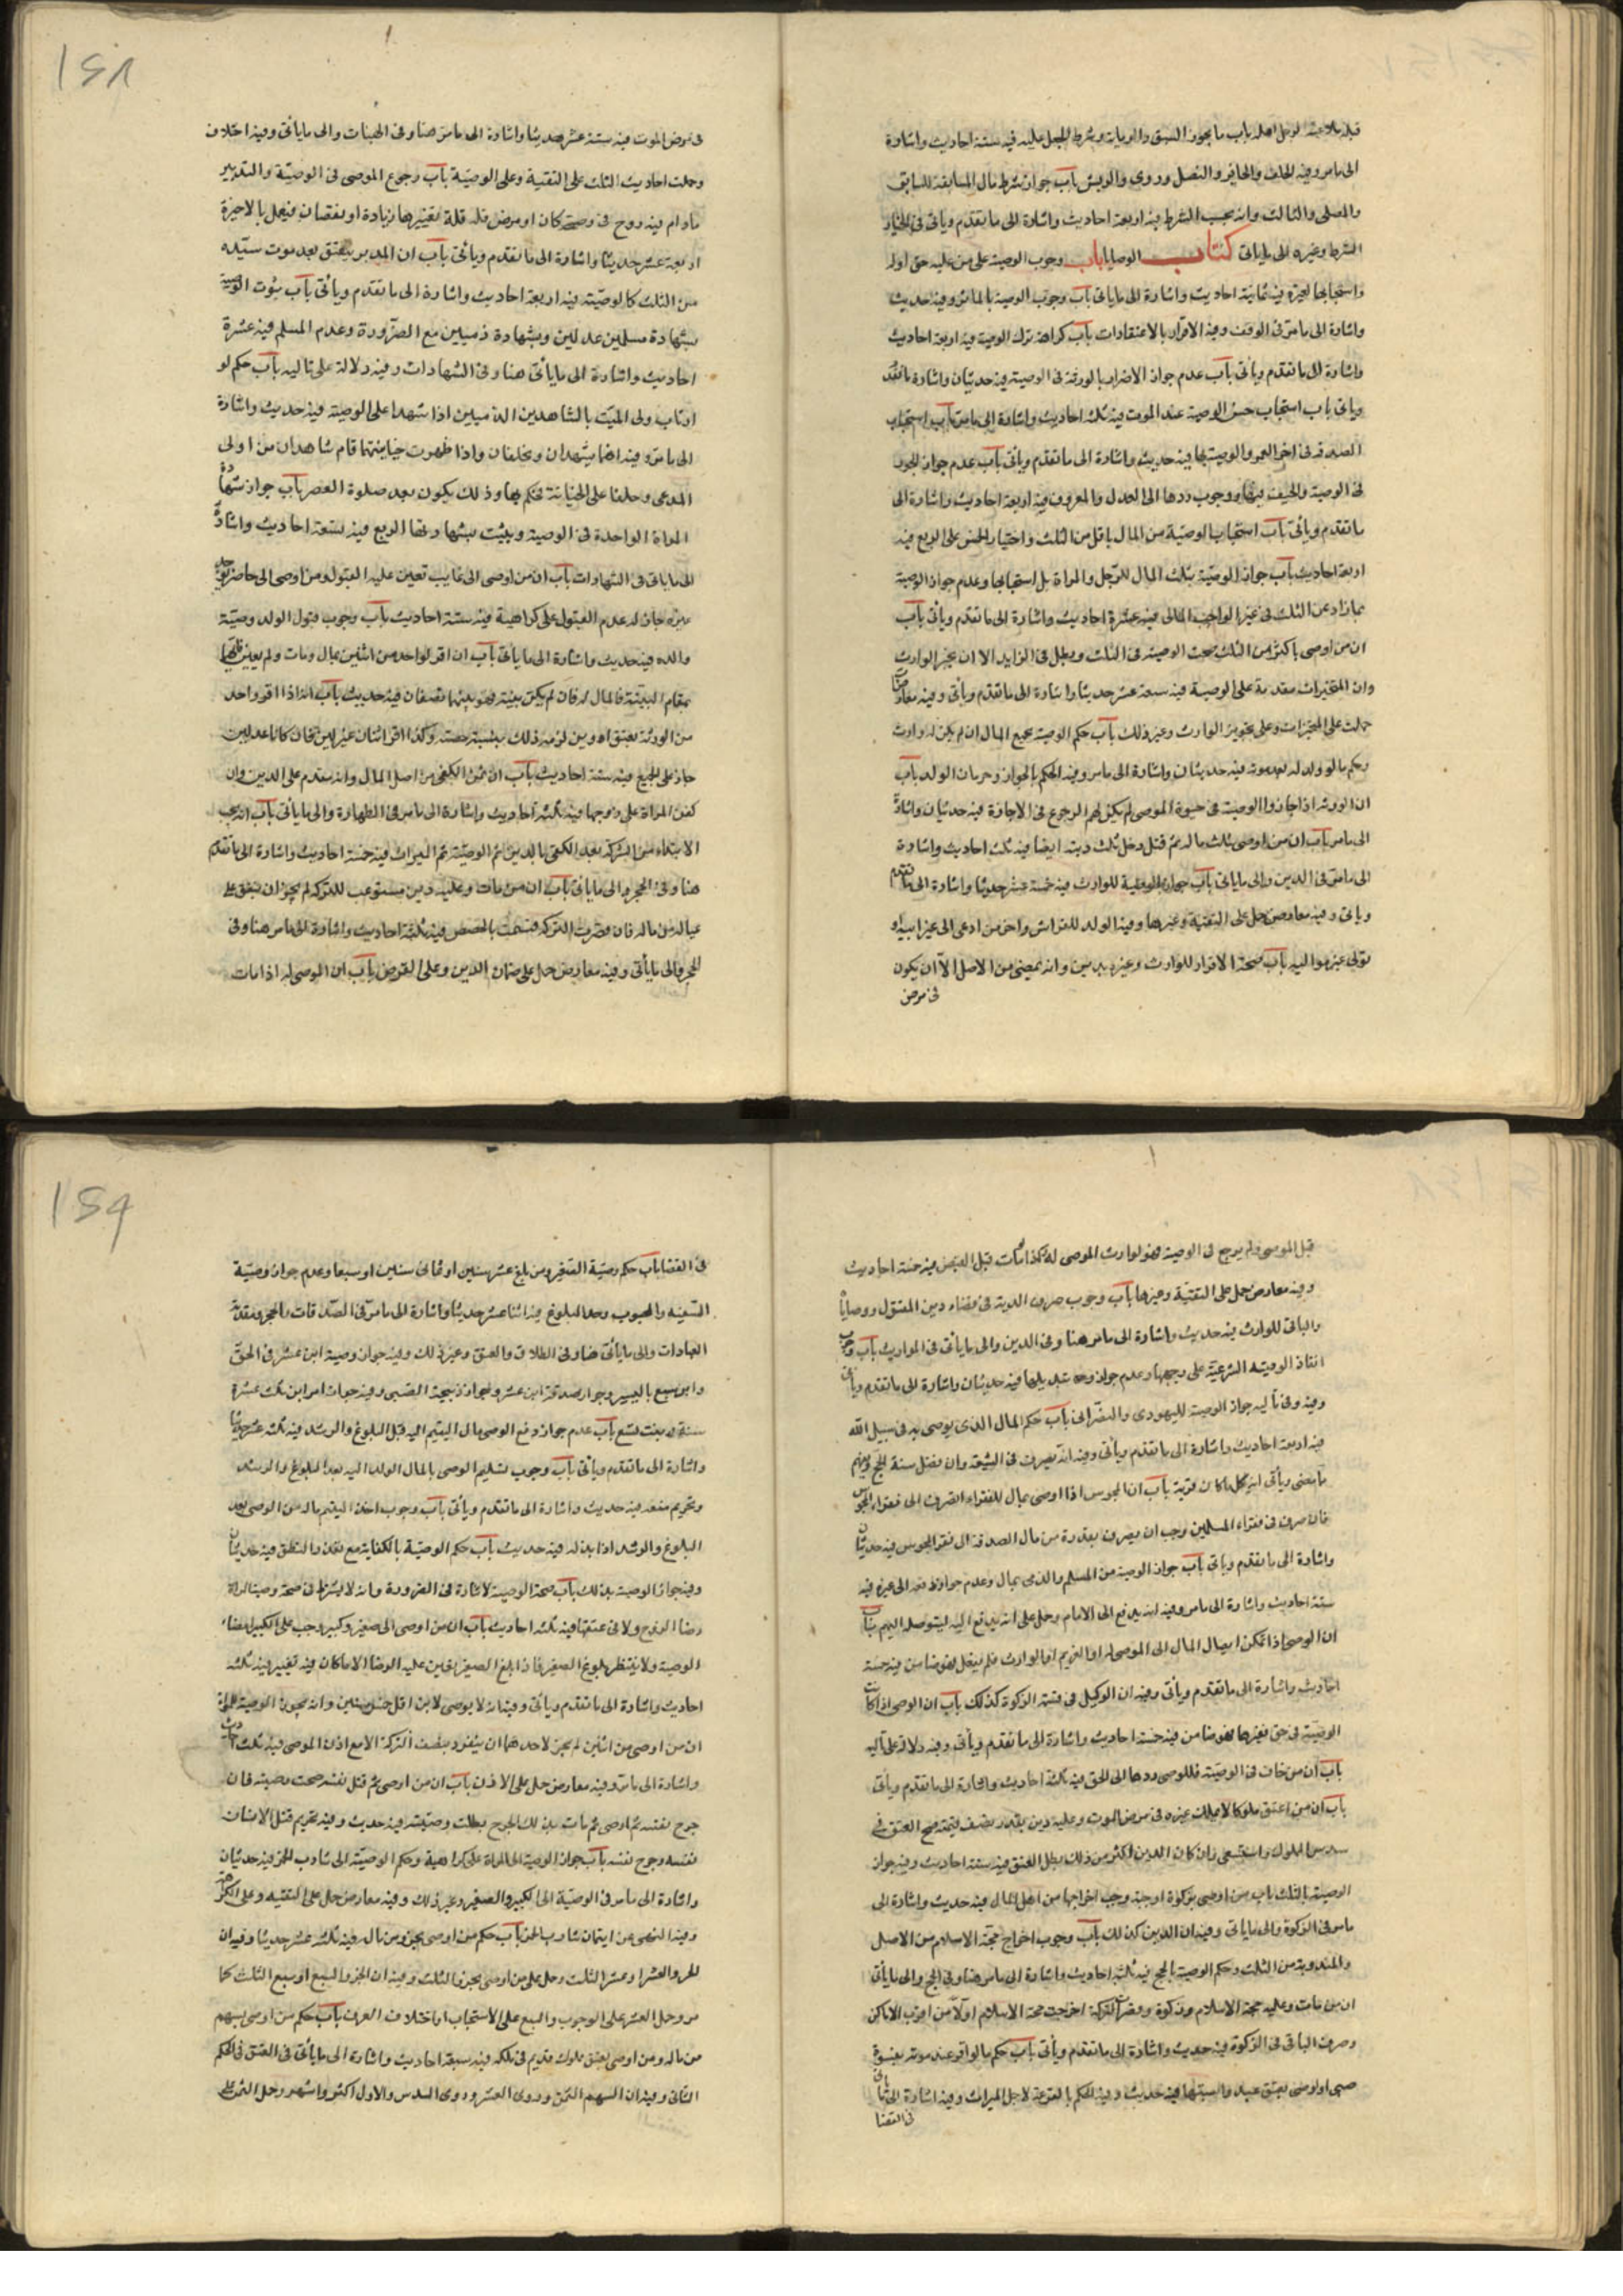 قبله بلا عنه لرجل اهله باب ما يجوز السبق والرماية وشرط الجعل عليه فيه ستة احاديث واشارة
الى ما مر وفيه الخف والحافر والنصل وروى والريش باب جواز شرط مال المسابقة للسابق
والمصلى والثالث وانه بحسب الشرط فيه اربعة احاديث واشارة الى ما تقدم وياتى فى الخيار
الشرط وغيره الى ما ياتى كتاب الوصايا باب وجوب الوصية على من عليه حق اوله
واستحبابها لغيره فيه ثمانية احاديث واشارة الى ما ياتى باب وجوب الوصية بالمال وفيه حديث
واشارة الى ما مر فى الوقف وفيه الاقرار بالاعتقادات باب كراهة ترك الوصية فيه اربعة احاديث
واشارة الى ما تقدم وياتى باب عدم جواز الاضرار بالورثة فى الوصية فيه حديثان واشارة ما تقدم
وياتى باب استحباب حسن الوصية عند الموت فيه ثلث احاديث واشارة الى ما مر باب استحباب
الصدقة فى اخر العمر والوصية بها فيه حديث واشارة الى ما تقدم وياتى باب عدم جواز الجور
فى الوصية والحيف فيها ووجوب ردها الى العدل والمعروف فيه اربعة احاديث واشارة الى
ما تقدم وياتى باب استحباب الوصية من المال باقل من الثلث واختيار الخمس على الربع فيه
اربعة احاديث باب جواز الوصية بثلث المال للرجل والمراة بل استحبابها وعدم جواز الوصية
بما زاد عن الثلث فى غير الواجب المالى فيه عشرة احاديث واشارة الى ما تقدم وياتى باب
ان من اوصى باكثر من الثلث صحت الوصية فى الثلث وبطل فى الزايد الا ان يجيز الوارث
وان المنجزات مقدمة على الوصية فيه سبعة عشر حديثا واشارة الى ما تقدم وياتى وفيه معارض
حملت على المنجزات وعلى تجويز الوارث وغير ذلك باب حكم الوصية بجميع المال ان لم يكن له وارث
وحكم ما لو ولد له بعد موته فيه حديثان واشارة الى ما مر وفيه الحكم بالجواز وحرمان الولد باب
ان الورثة اذا اجازوا الوصية فى حيوة الموصى لم يكن لهم الرجوع فى الاجازة فيه حديثان واشارة
الى ما مر باب ان من اوصى بثلث ماله ثم قتل دخل ثلث ديته ايضا فيه ثلث احاديث واشارة
الى ما مر فى الدين والى ما ياتى باب جواز الوصية للوارث فيه خمسة عشر حديثا واشارة الى ما تقدم
وياتى وفيه معارض حمل على التقية وغيرها وفيه الولد للفراش واخر من ادعى الى غير ابيه او
تولى غير مواليه باب صحة الاقرار للوارث وغيره بدين وانه يمضى من الاصل الا ان يكون
فى مرض
١٤٨
فى مرض الموت فيه ستة عشر حديثا واشارة الى ما مر هنا وفى الهبات والى ما ياتى وفيه اختلاف
وحملت احاديث الثلث على التقية وعلى الوصية باب رجوع الموصى فى الوصية والتدبير
مادام فيه روح فى صحة كان او مرض فله تغييرها بزيادة او نقصان فيعمل بالاخيرة
اربعة عشر حديثا واشارة الى ما تقدم وياتى باب ان المدبر ينعتق بعد موت سيده
من الثلث كالوصية فيه اربعة احاديث واشارة الى ما تقدم وياتى باب ثبوت الوصية
بشهادة مسلمين عدلين وبشهادة ذميين مع الضرورة وعدم المسلم فيه عشرة
احاديث واشارة الى ما ياتى هنا وفى الشهادات وفيه دلالة على تاليه باب حكم لو
ارتاب ولى الميت بالشاهدين الذميين اذا شهدا على الوصية فيه حديث واشارة
الى ما مر وفيه انهما يشهدان ويحلفان واذا ظهرت خيانتهما قام شاهدان من اولى
المدعى وحلفا على الخيانة فيحكم بها وذلك يكون بعد صلوة العصر باب جواز شهادة
المراة الواحدة فى الوصية ويثبت بشهادتها الربع فيه تسعة احاديث واشارة
الى ما ياتى فى الشهادات باب ان من اوصى الى غايب تعين عليه القبول ومن اوصى الى حاضر يوجد
غيره جاز له عدم القبول على كراهية فيه ستة احاديث باب وجوب قبول الولد وصية
والده فيه حديث واشارة الى ما ياتى باب ان اقر لواحد من اثنين بمال ومات ولم يعين فايهما
يقام البينة فالمال له فان لم يكن بينة فهو بينهما نصفان فيه حديث باب انه اذا اقر واحد
من الورثة بعتق او دين لزمه ذلك بنسبة حصته وكذا اقر اثنان غير عدلين فان كانا عدلين
جاز على الجميع فيه ستة احاديث باب ان ثمن الكفن من اصل المال وانه مقدم على الدين وان
كفن المراة على زوجها فيه ثلثة احاديث واشارة الى ما مر فى الطهارة والى ما ياتى باب انه يجب
الابتداء من التركة بعد الكفن بالدين ثم الوصية ثم الميراث فيه خمسة احاديث واشارة الى ما تقدم
هنا وفى الحجر والى ما ياتى باب ان من مات وعليه دين مستوعب للتركة لم يجز ان ينفق على
عياله من ماله فان قصرت التركة قسمت بالحصص فيه ثلثة احاديث واشارة الى ما مر هنا وفى
الحجر والى ما ياتى وفيه معارض حمل على ضمان الدين وعلى القرض باب ان الموصى له اذا مات
قبل الموصى ولم يرجع فى الوصية فهو لوارث الموصى له وكذا لو مات قبل القبض فيه خمسة احاديث
وفيه معارض حمل على التقية وغيرها باب وجوب صرف الدية فى قضاء دين المقتول ووصاياه
والباقى للوارث فيه حديث واشارة الى ما مر هنا وفى الدين والى ما ياتى فى المواريث باب وجوب
انفاذ الوصية الشرعية على وجهها وعدم جواز تبديلها فيه حديثان واشارة الى ما تقدم وياتى
وفيه وفى تاليه جواز الوصية لليهودى والنصرانى باب حكم المال الذى يوصى به فى سبيل الله
فيه اربعة احاديث واشارة الى ما تقدم وياتى وفيه انه يصرف فى الشيعة وان افضل سنة الحج
ما مضى وياتى انه كل ما كان قربة باب ان المجوس اذا اوصى بمال للفقراء انصرف الى فقراء المجوس
فان صرف فى فقراء المسلمين وجب ان يصرف بقدره من مال الصدقة الى فقراء المجوس فيه حديثان
واشارة الى ما تقدم وياتى باب جواز الوصية من المسلم والذمى بمال وعدم جواز دفعه الى غيره فيه
ستة احاديث واشارة الى ما مر وفيه انه يدفع الى الامام وحمل على انه يدفع اليه ليتوصله اليهم باب
ان الوصى اذا تمكن ايصال المال الى الموصى له او الغريم او الوارث فلم يفعل فهو ضامن فيه خمسة
احاديث واشارة الى ما تقدم وياتى وفيه ان الوكيل فى قسمة الزكوة كذلك باب ان الوصى اذا كانت
الوصية فى حق فغيرها فهو ضامن فيه خمسة احاديث واشارة الى ما تقدم وياتى وفيه دلالة على تاليه
باب ان من خاف فى الوصية فللوصى ردها الى الحق فيه ثلثة احاديث واشارة الى ما تقدم وياتى
باب ان من اعتق مملوكا لا يملك غيره فى مرض الموت وعليه دين بقدر نصف قيمته صح العتق فى
سدس المملوك واستسعى وان كان الدين اكثر من ذلك بطل العتق فيه ستة احاديث وفيه جواز
الوصية بالثلث باب من اوصى بزكوة اوجبه وجب اخراجها من اصل المال فيه حديث واشارة الى
ما مر فى الزكوة والى ما ياتى وفيه ان الدين كذلك باب وجوب اخراج حجة الاسلام من الاصل
والمندوبة من الثلث وحكم الوصية بالحج فيه ثلثة احاديث واشارة الى ما مر هنا وفى الحج والى ما ياتى
ان من مات وعليه حجة الاسلام وزكوة وقصرت التركة اخرجت حجة الاسلام اولا من اقرب الاماكن
وصرف الباقى فى الزكوة فيه حديث واشارة الى ما تقدم وياتى باب حكم ما لو اقر عند موته ببنوة
صبى او اوصى بعتق عبد واشتبها فيه حديث وفيه الحكم بالقرعة لاجل الميراث وفيه اشارة الى ما ياتى
فى القضا
١٤٩
فى القضا باب حكم وصية الصغير ومن بلغ عشر سنين او ثمانى سنين او سبعا وعدم جواز وصية
السفيه والمجنون وحد البلوغ فيه اثنا عشر حديثا واشارة الى ما مر فى الصدقات والحجر ومقدمة
العبادات والى ما ياتى هنا وفى الطلاق والعتق وغير ذلك وفيه جواز وصية ابن عشر فى الحق
وابن سبع باليسير وجواز صدقة ابن عشر وجواز ذبيحة الصبى وفيه جواز امر ابن ثلث عشرة
سنة وبنت تسع باب عدم جواز دفع الوصى مال اليتيم اليه قبل البلوغ والرشد فيه ثلثة عشر حديثا
واشارة الى ما تقدم وياتى باب وجوب تسليم الوصى بالمال الولد اليه بعد البلوغ والرشد
وتحريم منعه فيه حديث واشارة الى ما تقدم وياتى باب وجوب اخذ اليتيم ماله من الوصى بعد
البلوغ والرشد اذا بذله فيه حديث باب حكم الوصية بالكفاية مع تعذر النطق فيه حديثان
وفيه جواز الوصية بذلك باب صحة الوصية لاشارة فى الضرورة وانه لا يشترط فى صحة وصية المراة
رضا الزوج ولا فى عتقها فيه ثلثة احاديث باب ان من اوصى الى صغير وكبير وجب على الكبير امضاء
الوصية ولا ينتظر بلوغ الصغير فاذا بلغ الصغير تعين عليه الرضا الا ما كان فيه تغيير فيه ثلثة
احاديث واشارة الى ما تقدم وياتى وفيه انه لا يوصى لابن اقل خمس سنين وانه يجوز الوصية للمراة
ان من اوصى من اثنين لم يجز لاحدهما ان ينفرد بنصف التركة الا مع اذن الموصى فيه ثلث احاديث
واشارة الى ما مر وفيه معارض حمل على الاذن باب ان من اوصى ثم قتل نفسه صحت وصيته فان
جرح نفسه ثم اوصى ثم مات بذلك الجرح بطلت وصيته فيه حديث وفيه تحريم قتل الانسان
نفسه وجرح نفسه باب جواز الوصية الى المراة على كراهية وحكم الوصية الى شارب الخمر فيه حديثان
واشارة الى ما مر فى الوصية الى الكبير والصغير وغير ذلك وفيه معارض حمل على التقية وعلى الكراهة
وفيه النهى عن ايتمان شارب الخمر باب حكم من اوصى بجزء من ماله فيه ثلثة عشر حديثا وفيه ان
الجزء العشر او عشر الثلث وحمل على من اوصى بجزء الثلث وفيه ان الجزء السبع او سبع الثلث كما
مر وحمل العشر على الوجوب والسبع على الاستحباب او اختلاف العرف باب حكم من اوصى بسهم
من ماله ومن اوصى بعتق مملوك قديم فى ملكه فيه سبعة احاديث واشارة الى ما ياتى فى العتق فى الحكم
الثانى وفيه ان السهم الثمن وروى العشر وروى السدس والاول اكثر واشهر وحمل الثمن على